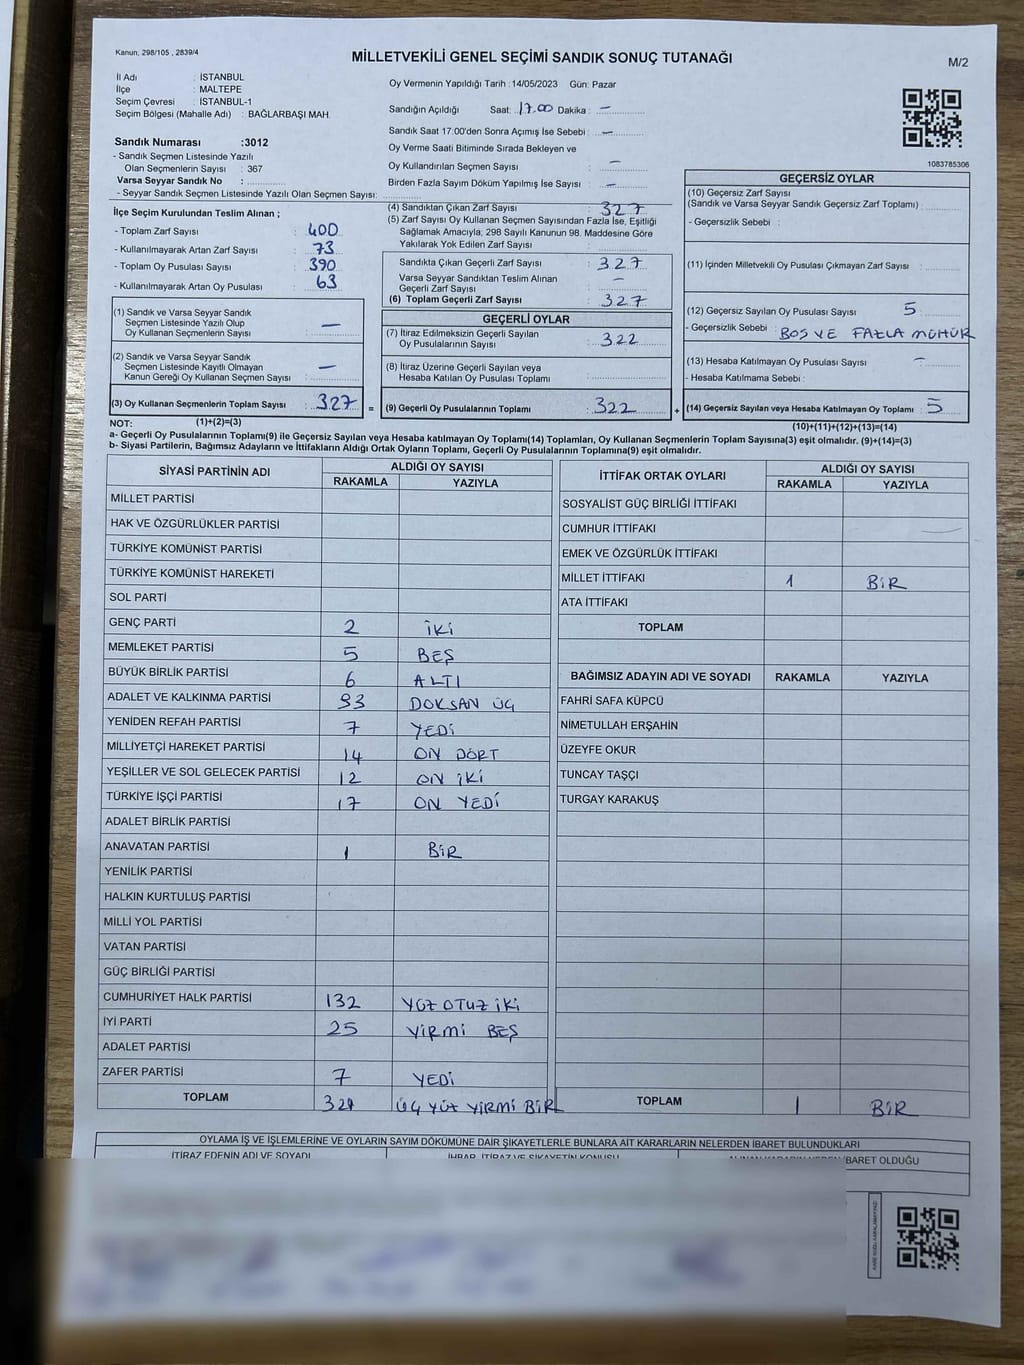 Kanun: 298/105 , 2839/4
MİLLETVEKİLİ GENEL SEÇİMİ SANDIK SONUÇ TUTANAĞI
M/2
İl Adı : İSTANBUL
İlçe : MALTEPE
Seçim Çevresi : İSTANBUL-1
Seçim Bölgesi (Mahalle Adı) : BAĞLARBAŞI MAH.
Sandık Numarası :3012
- Sandık Seçmen Listesinde Yazılı
Olan Seçmenlerin Sayısı : 367
Varsa Seyyar Sandık No :
- Seyyar Sandık Seçmen Listesinde Yazılı Olan Seçmen Sayısı:
İlçe Seçim Kurulundan Teslim Alınan ;
- Toplam Zarf Sayısı : 400
- Kullanılmayarak Artan Zarf Sayısı : 73
- Toplam Oy Pusulası Sayısı : 390
- Kullanılmayarak Artan Oy Pusulası : 63
(1) Sandık ve Varsa Seyyar Sandık
Seçmen Listesinde Yazılı Olup
Oy Kullanan Seçmenlerin Sayısı : —
(2) Sandık ve Varsa Seyyar Sandık
Seçmen Listesinde Kayıtlı Olmayan
Kanun Gereği Oy Kullanan Seçmen Sayısı : —
(3) Oy Kullanan Seçmenlerin Toplam Sayısı : 327 =
Oy Vermenin Yapıldığı Tarih : 14/05/2023 Gün: Pazar
Sandığın Açıldığı Saat: 17.00 Dakika : —
Sandık Saat 17.00'den Sonra Açımış İse Sebebi : —
Oy Verme Saati Bitiminde Sırada Bekleyen ve
Oy Kullandırılan Seçmen Sayısı : —
Birden Fazla Sayım Döküm Yapılmış İse Sayısı : —
(4) Sandıktan Çıkan Zarf Sayısı : 327
(5) Zarf Sayısı Oy Kullanan Seçmen Sayısından Fazla İse, Eşitliği
Sağlamak Amacıyla, 298 Sayılı Kanunun 98. Maddesine Göre
Yakılarak Yok Edilen Zarf Sayısı :
Sandıkta Çıkan Geçerli Zarf Sayısı : 327
Varsa Seyyar Sandıktan Teslim Alınan
Geçerli Zarf Sayısı : —
(6) Toplam Geçerli Zarf Sayısı : 327
GEÇERLİ OYLAR
(7) İtiraz Edilmeksizin Geçerli Sayılan
Oy Pusulalarının Sayısı : 322
(8) İtiraz Üzerine Geçerli Sayılan veya
Hesaba Katılan Oy Pusulası Toplamı :
(9) Geçerli Oy Pusulalarının Toplamı : 322 +
1083785306
GEÇERSİZ OYLAR
(10) Geçersiz Zarf Sayısı
(Sandık ve Varsa Seyyar Sandık Geçersiz Zarf Toplamı) :
- Geçersizlik Sebebi :
(11) İçinden Milletvekili Oy Pusulası Çıkmayan Zarf Sayısı :
(12) Geçersiz Sayılan Oy Pusulası Sayısı : 5
- Geçersizlik Sebebi : BOŞ VE FAZLA MÜHÜR
(13) Hesaba Katılmayan Oy Pusulası Sayısı : —
- Hesaba Katılmama Sebebi :
(14) Geçersiz Sayılan veya Hesaba Katılmayan Oy Toplamı : 5
NOT: (1)+(2)=(3)
(10)+(11)+(12)+(13)=(14)
a- Geçerli Oy Pusulalarının Toplamı(9) ile Geçersiz Sayılan veya Hesaba katılmayan Oy Toplamı(14) Toplamları, Oy Kullanan Seçmenlerin Toplam Sayısına(3) eşit olmalıdır. (9)+(14)=(3)
b- Siyasi Partilerin, Bağımsız Adayların ve İttifakların Aldığı Ortak Oyların Toplamı, Geçerli Oy Pusulalarının Toplamına(9) eşit olmalıdır.
SİYASİ PARTİNİN ADI ALDIĞI OY SAYISI
RAKAMLA YAZIYLA
MİLLET PARTİSİ
HAK VE ÖZGÜRLÜKLER PARTİSİ
TÜRKİYE KOMÜNİST PARTİSİ
TÜRKİYE KOMÜNİST HAREKETİ
SOL PARTİ
GENÇ PARTİ 2 İKİ
MEMLEKET PARTİSİ 5 BEŞ
BÜYÜK BİRLİK PARTİSİ 6 ALTI
ADALET VE KALKINMA PARTİSİ 93 DOKSAN ÜÇ
YENİDEN REFAH PARTİSİ 7 YEDİ
MİLLİYETÇİ HAREKET PARTİSİ 14 ON DÖRT
YEŞİLLER VE SOL GELECEK PARTİSİ 12 ON İKİ
TÜRKİYE İŞÇİ PARTİSİ 17 ON YEDİ
ADALET BİRLİK PARTİSİ
ANAVATAN PARTİSİ 1 BİR
YENİLİK PARTİSİ
HALKIN KURTULUŞ PARTİSİ
MİLLİ YOL PARTİSİ
VATAN PARTİSİ
GÜÇ BİRLİĞİ PARTİSİ
CUMHURİYET HALK PARTİSİ 132 YÜZ OTUZ İKİ
İYİ PARTİ 25 YİRMİ BEŞ
ADALET PARTİSİ
ZAFER PARTİSİ 7 YEDİ
TOPLAM 321 ÜÇ YÜZ YİRMİ BİR
İTTİFAK ORTAK OYLARI ALDIĞI OY SAYISI
RAKAMLA YAZIYLA
SOSYALİST GÜÇ BİRLİĞİ İTTİFAKI
CUMHUR İTTİFAKI
EMEK VE ÖZGÜRLÜK İTTİFAKI
MİLLET İTTİFAKI 1 BİR
ATA İTTİFAKI
TOPLAM
BAĞIMSIZ ADAYIN ADI VE SOYADI RAKAMLA YAZIYLA
FAHRİ SAFA KÜPCÜ
NİMETULLAH ERŞAHİN
ÜZEYFE OKUR
TUNCAY TAŞÇI
TURGAY KARAKUŞ
TOPLAM 1 BİR
OYLAMA İŞ VE İŞLEMLERİNE VE OYLARIN SAYIM DÖKÜMÜNE DAİR ŞİKAYETLERLE BUNLARA AİT KARARLARIN NELERDEN İBARET BULUNDUKLARI
İTİRAZ EDENİN ADI VE SOYADI İHBAR, İTİRAZ VE ŞİKAYETİN KONUSU İBARET OLDUĞU